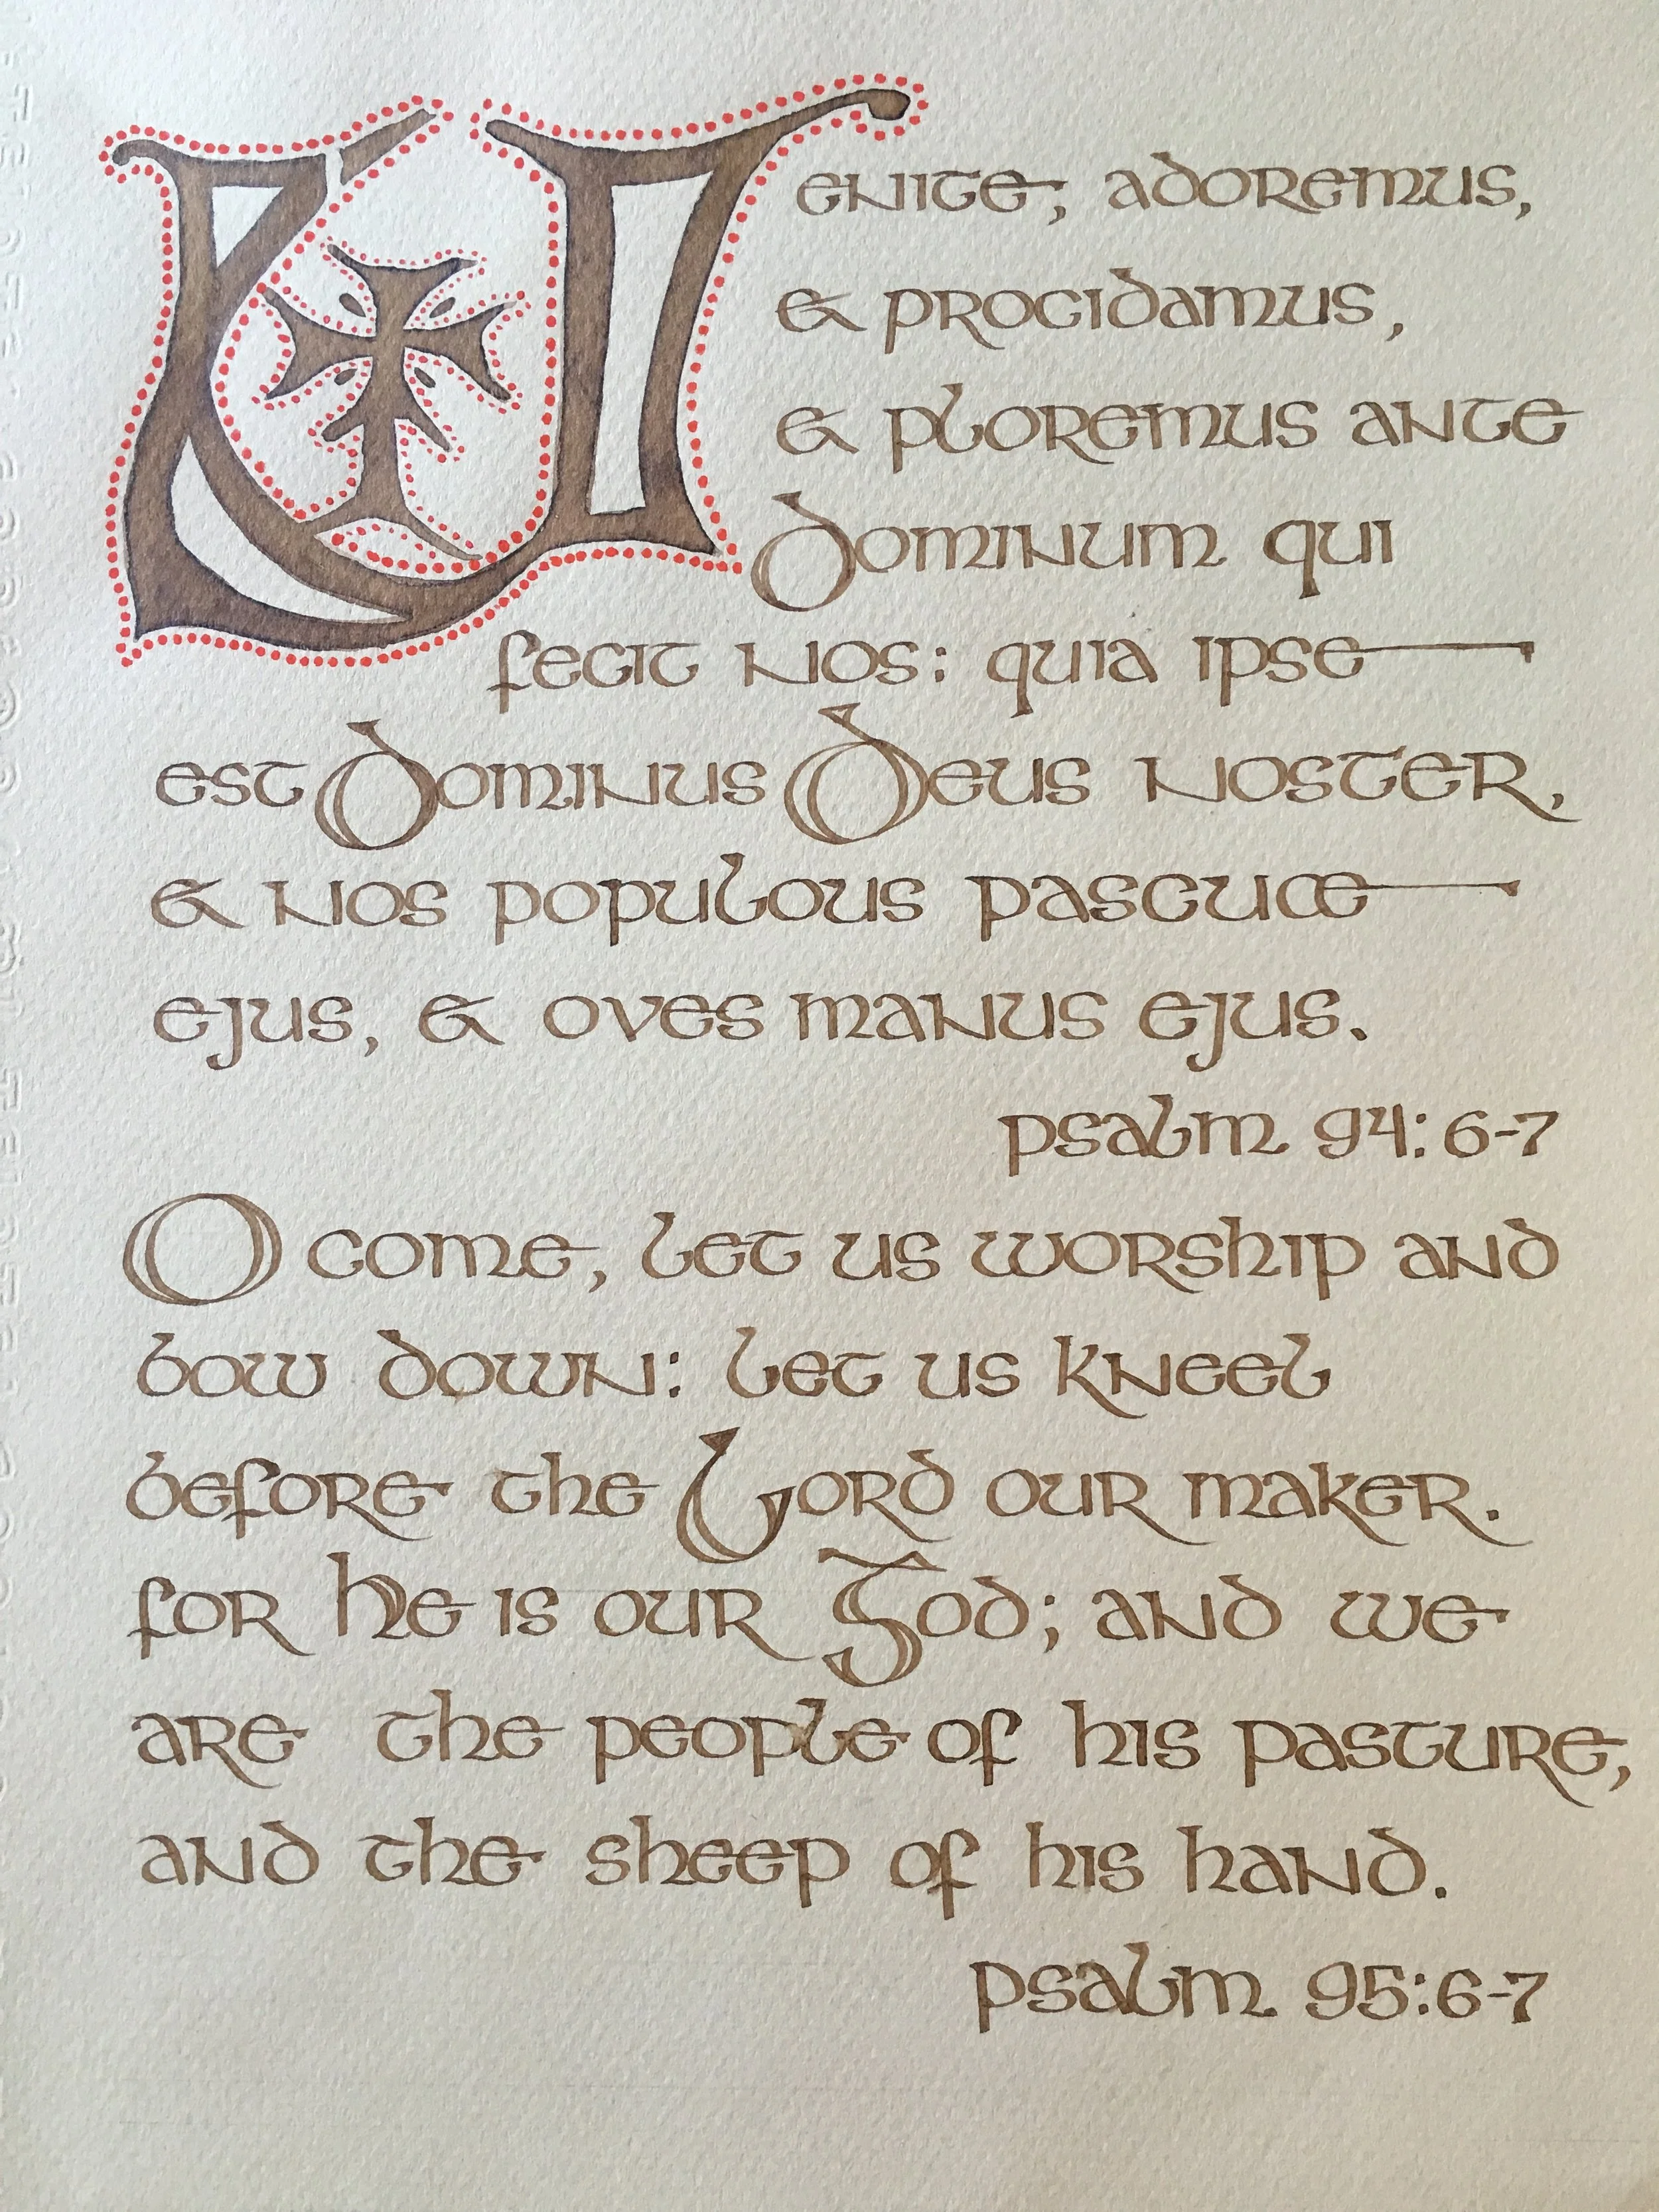 Venite, adoremus,
& procidamus,
& ploremus ante
Dominum qui
fecit nos: quia ipse
est Dominus Deus noster,
& nos populous pascuæ
ejus, & oves manus ejus.
psalm 94:6-7
O come, let us worship and
bow down: let us kneel
before the Lord our maker.
for He is our God; and we
are the people of his pasture,
and the sheep of his hand.
psalm 95:6-7